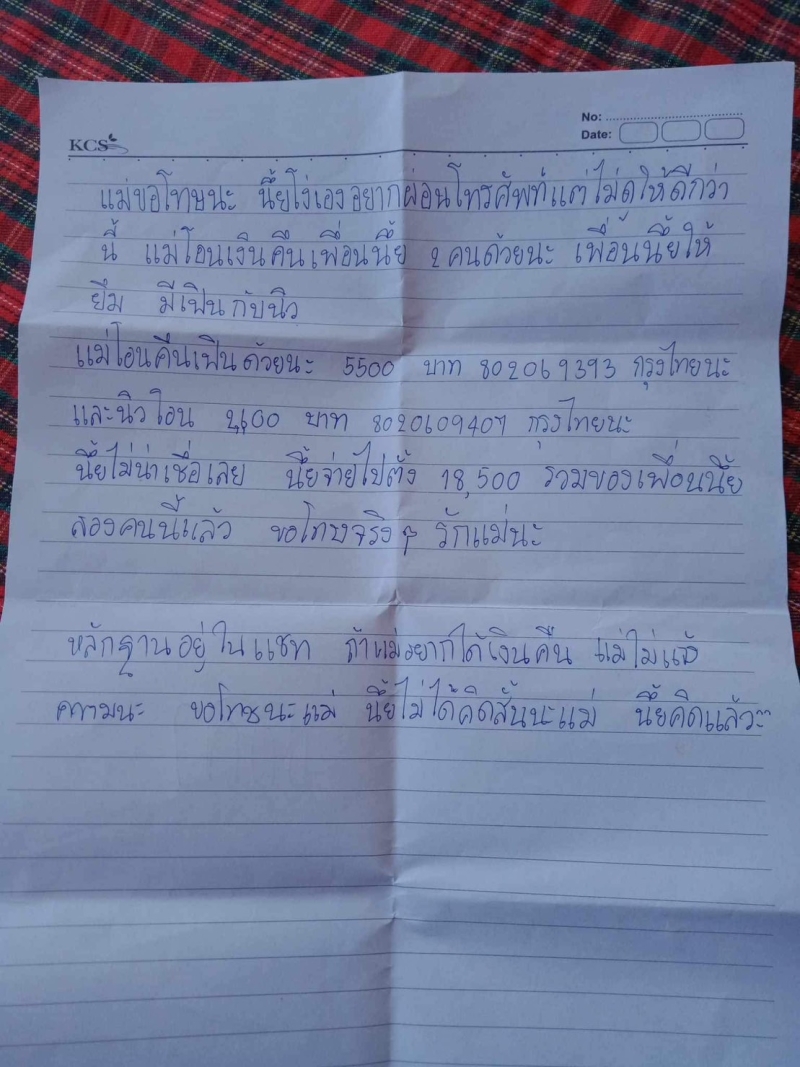 KCS
No:
Date:
แม่ขอโทษนะ นึ้ยโง่เองอยากผ่อนโทรศัพท์แต่ไม่ดูให้ดีกว่า
นี้ แม่โอนเงินคืนเพื่อนนึ้ย 2 คนด้วยนะ เพื่อนนึ้ยให้
ยืม มีเฟินกับนิว
แม่โอนคืนเฟินด้วยนะ 5500 บาท 802069393 กรุงไทยนะ
และนิวโอน บาท กรุงไทยนะ
นึ้ยไม่น่าเชื่อเลย นึ้ยจ่ายไปตั้ง 18,500 รวมของเพื่อนนึ้ย
สองคนนี้แล้ว ขอโทษจริงๆ รักแม่นะ
หลักฐานอยู่ในแชท ถ้าแม่อยากได้เงินคืน แม่ไปแจ้ง
ความนะ ขอโทษนะแม่ นึ้ยไม่ได้คิดสั้นนะแม่ นึ้ยคิดแล้ว